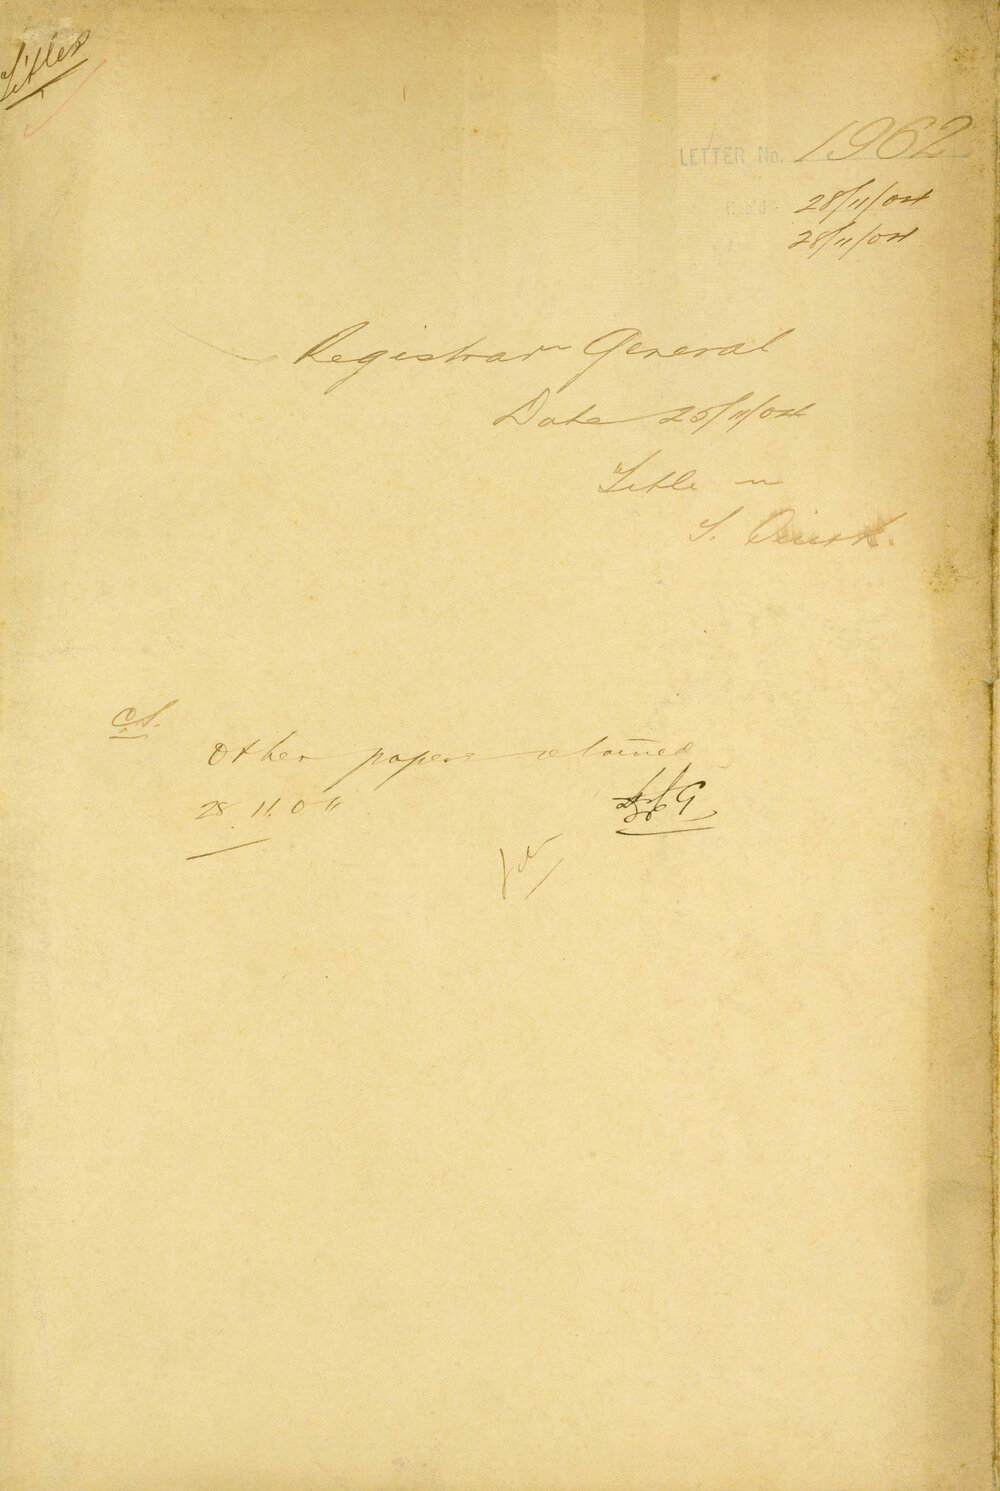 Titles
LETTER No. 1962
Rec'd. 28/11/04
28/11/04
Registrar General
Date 25/11/04
Title in
S.
C.S.
Other papers retained
28 11. 0 "